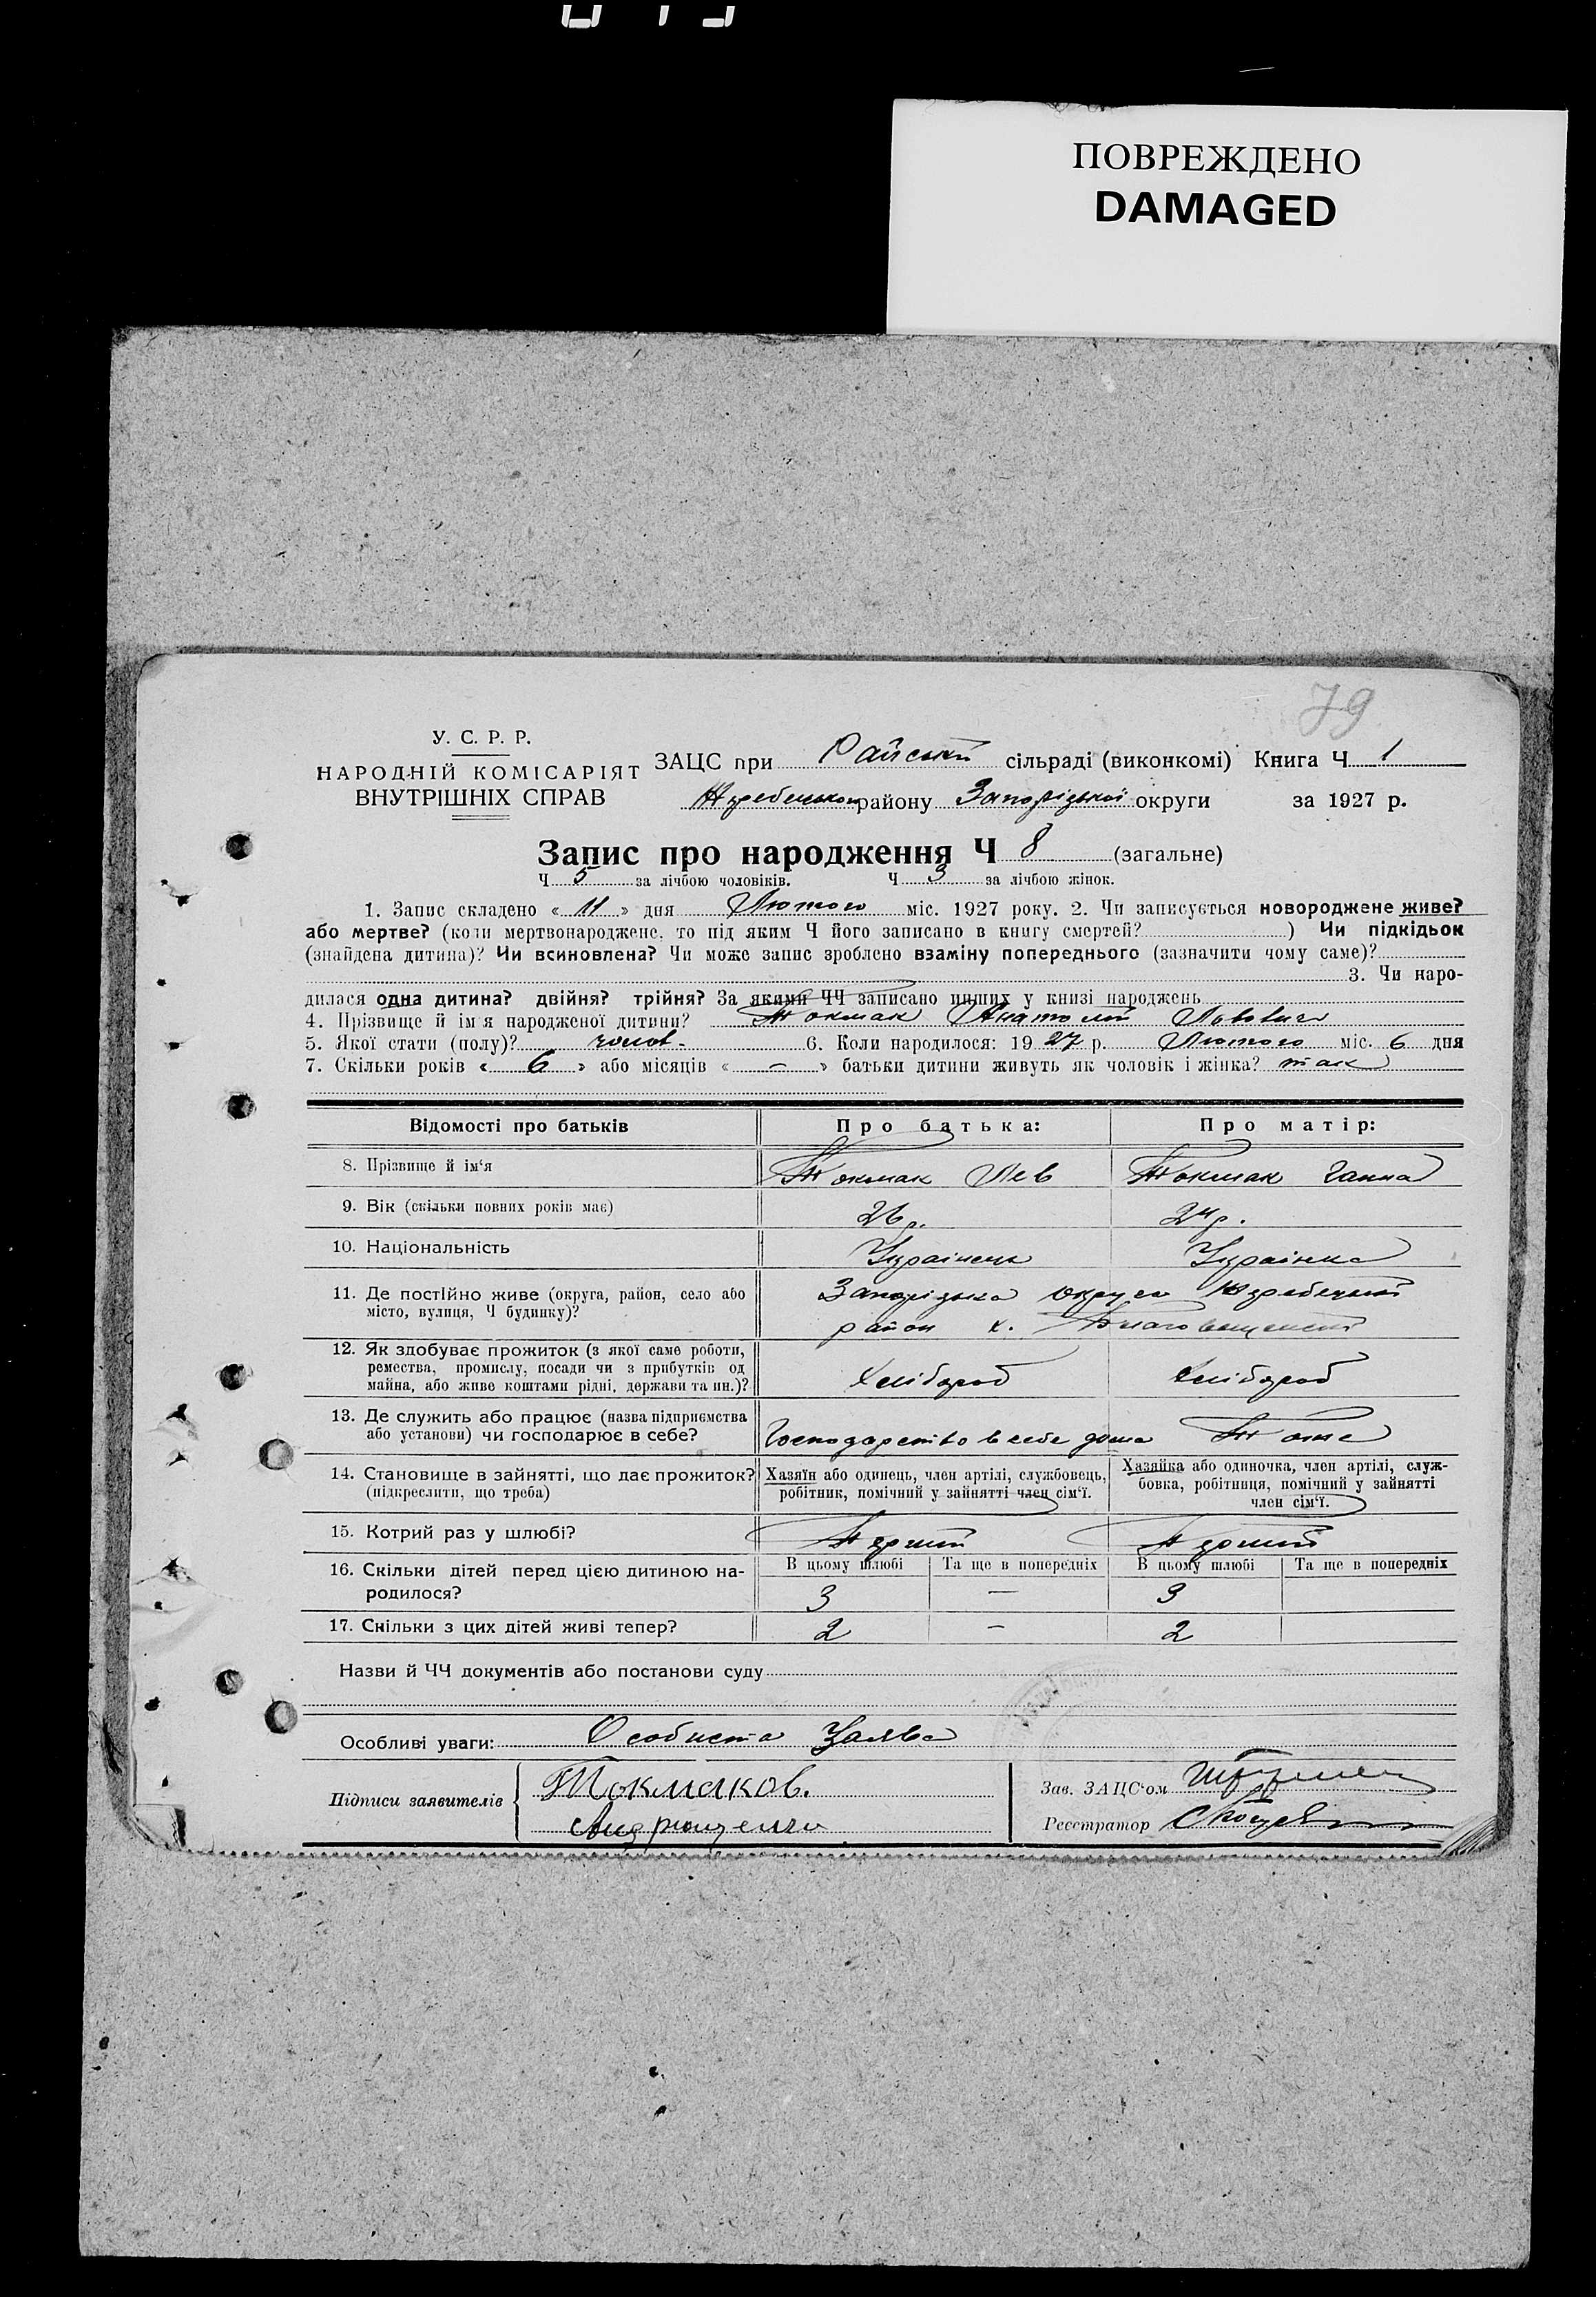 ПОВРЕЖДЕНО
DAMAGED
79
У. С. Р. Р.
НАРОДНІЙ КОМІСАРІЯТ
ВНУТРІШНІХ СПРАВ
ЗАЦС при Райській сільраді (виконкомі) Книга Ч 1
району Запорізької округи за 1927 р.
Запис про народження Ч 8 (загальне)
Ч 5 за лічбою чоловіків. Ч 3 за лічбою жінок.
1. Запис складено « 11 » дня Лютого міс. 1927 року. 2. Чи записується новороджене живе?
або мертве? (коли мертвонароджене, то під яким Ч його записано в книгу смертей? ) Чи підкідьок
(знайдена дитина)? Чи всиновлена? Чи може запис зроблено взаміну попереднього (зазначити чому саме)?
3. Чи наро-
дилася одна дитина? двійня? трійня? За якими ЧЧ записано инших у книзі народжень
4. Прізвище й ім'я народженої дитини? Токмак Анатолій Львович
5. Якої стати (полу)? чолов. 6. Коли народилося: 1927 р. Лютого міс. 6 дня
7. Скільки років « 6 » або місяців « — » батьки дитини живуть як чоловік і жінка? так
Відомості про батьків Про батька: Про матір:
8. Прізвище й ім'я Токмак Лев Токмак Ганна
9. Вік (скільки повних років має) 26 р. 24 р.
10. Національність Українець Українка
11. Де постійно живе (округа, район, село або
місто, вулиця, Ч будинку)?
Запорізька округа
район х.
12. Як здобуває прожиток (з якої саме роботи,
ремества, промислу, посади чи з прибутків од
майна, або живе коштами рідні, держави та ин.)?
Хлібороб Хлібороб
13. Де служить або працює (назва підприємства
або установи) чи господарює в себе?
Господарство в себе дома Тоже
14. Становище в зайнятті, що дає прожиток?
(підкреслити, що треба)
Хазяїн або одинець, член артілі, службовець,
робітник, помічний у зайнятті член сім'ї.
Хазяйка або одиночка, член артілі, служ-
бовка, робітниця, помічний у зайнятті
член сім'ї.
15. Котрий раз у шлюбі? Перший Перший
16. Скільки дітей перед цією дитиною на-
родилося?
В цьому шлюбі Та ще в попередніх В цьому шлюбі Та ще в попередніх
3 — 3
17. Скільки з цих дітей живі тепер? 2 — 2
Назви й ЧЧ документів або постанови суду
Особливі уваги: Особиста Заява
Підписи заявителів Токмаков.
Андрющенко
Зав. ЗАЦС'ом
Реєстратор